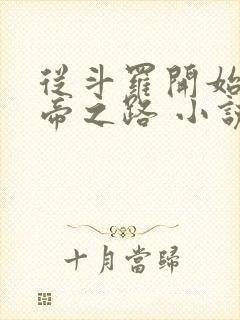 從斗羅開始
帝之路 小說
十月當歸